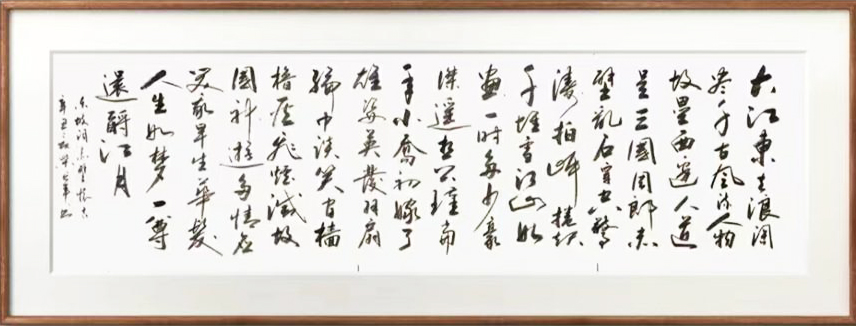 大江東去浪淘
尽千古風流人物
故壘西邊人道
是三國周郎赤
壁乱石穿空驚
濤拍岸捲起
千堆雪江山如
畫一時多少豪
傑遥想公瑾當
年小喬初嫁了
雄姿英發羽扇
綸巾談笑间樯
櫓灰飛煙滅故
國神遊多情應
笑我早生華髮
人生如夢一尊
還酹江月
东坡詞赤壁懷古
辛丑